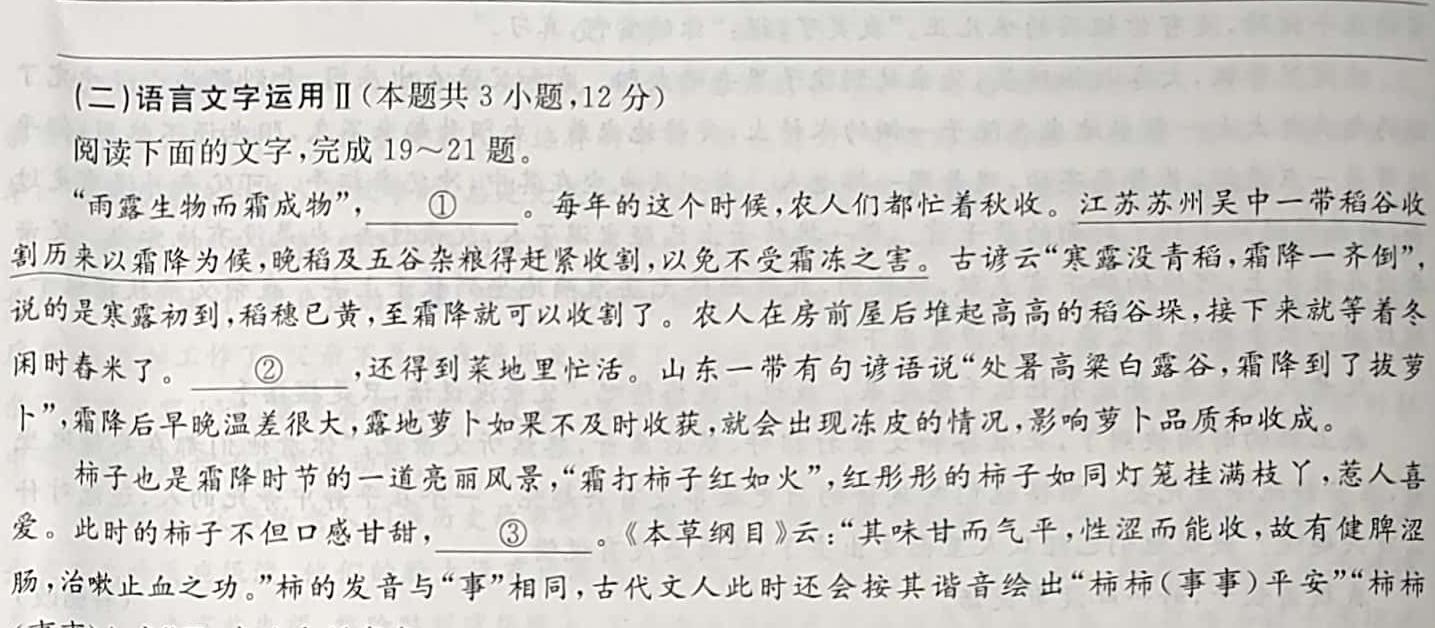 (二)语言文字运用Ⅱ(本题共 3 小题,12 分)
阅读下面的文字,完成 19~21 题。
“雨露生物而霜成物”, ① 。每年的这个时候,农人们都忙着秋收。江苏苏州吴中一带稻谷收
割历来以霜降为候,晚稻及五谷杂粮得赶紧收割,以免不受霜冻之害。古谚云“寒露没青稻,霜降一齐倒”,
说的是寒露初到,稻穗已黄,至霜降就可以收割了。农人在房前屋后堆起高高的稻谷垛,接下来就等着冬
闲时舂米了。 ② ,还得到菜地里忙活。山东一带有句谚语说“处暑高粱白露谷,霜降到了拔萝
卜”,霜降后早晚温差很大,露地萝卜如果不及时收获,就会出现冻皮的情况,影响萝卜品质和收成。
柿子也是霜降时节的一道亮丽风景,“霜打柿子红如火”,红彤彤的柿子如同灯笼挂满枝丫,惹人喜
爱。此时的柿子不但口感甘甜, ③ 。《本草纲目》云:“其味甘而气平,性涩而能收,故有健脾涩
肠,治嗽止血之功。”柿的发音与“事”相同,古代文人此时还会按其谐音绘出“柿柿(事事)平安”“柿柿